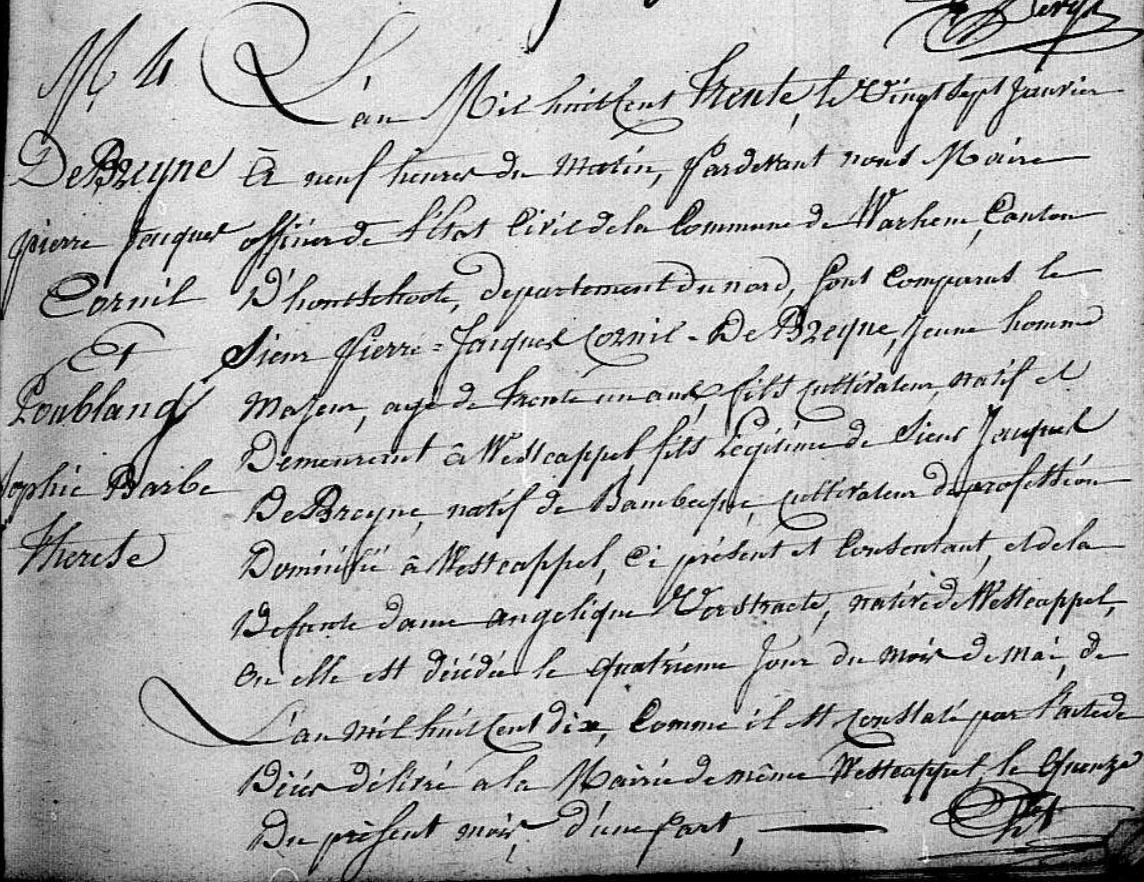 M. 4
DeBreyne
pierre Jacques
Cornil
Et
Poublang
Sophie Barbe
therese
L'an Mil huit Cent trente, le Vingt Sept Janvier
à neuf heures du matin, pardevant nous Maire
officier de l'Etat Civil de la Commune de Warhem, Canton
D'hontschoote, departement du nord, sont Comparus le
Sieur Pierre-Jacques Cornil-DeBreyne, Jeune homme
Majeur, agé de trente un ans, fils cultivateur, natif et
Demeurant à Westcappel, fils Légitime de Sieur Jacques
DeBreyne, natif de Bambeque, cultivateur de profession
Domicilié à Westcappel, Ci présent et Consentant, et de la
Defunte dame angelique Verstraete, native de Westcappel,
ou elle est décédée le quatrieme Jour du mois de mai, de
L'an mil huit Cent dix, Comme il est Constaté par l'acte de
Décès délivré a la Mairie de même Westcappel, le Quenze
Du présent mois, d'une part,